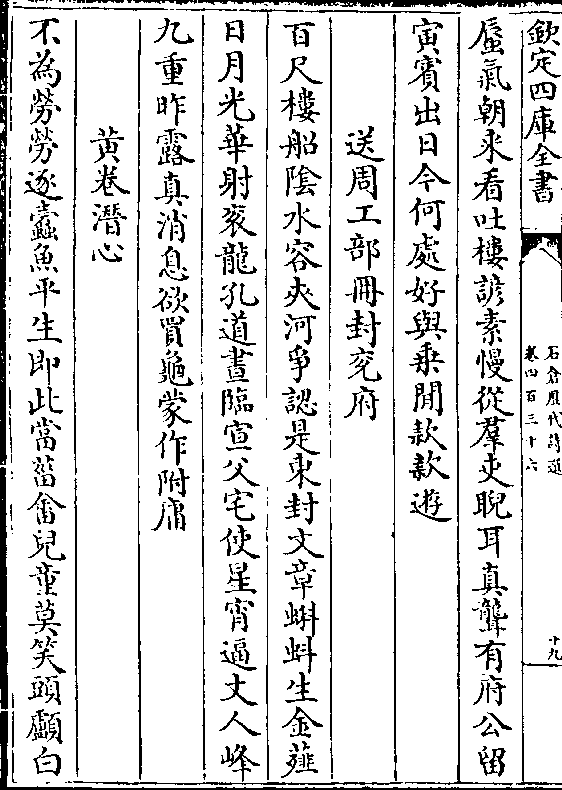 欽定四庫全書
石倉歴代詩選
卷四百三十六
十九
蜃氣朝來看吐樓諺素慢從羣吏睨耳真聾有府公留
寅賓出日今何處好與乗閒款款遊
送周工部冊封兖府
百尺樓船隂水容夾河爭認是東封文章蝌蚪生金薤
日月光華射衮龍孔道晝臨宣父宅使星宵逼丈人峰
九重昨露真消息欲買龜蒙作附庸
黄卷潛心
不為勞勞逐蠧魚平生即此當菑畬兒童莫笑頭顱白